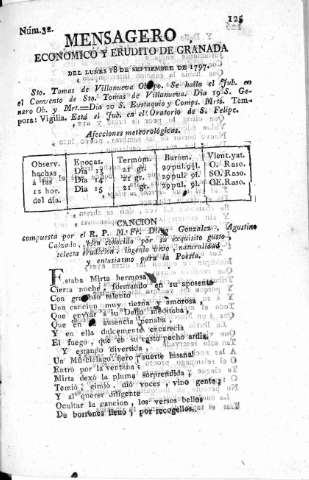 Núm. 32.
125
MENSAGERO
ECONOMICO Y ERUDITO DE GRANADA
DEL LUNES 18 DE SEPTIEMBRE DE 1797.
Sto. Tomas de Villanueva Se halla el Jub. en
el Convento de Sto. Tomas de Villanueva. Dia 19 S. Ge-
naro Ob. y Mr.—Dia 20 S. Eustaquio y Comps. Mrs. Tem-
pora: Vigilia. Está el Jub. en el Oratorio de S. Felipe.
Afecciones meteorológicas.
Observ. Epocas. Termóm. Baróm. Vient. yat.
hechas Dia 13 21 gr. 29 pul. O. Raso.
á las Dia 14 21 gr. 29 pul. pl. SO. Raso.
12 hor. Dia 15 21 gr. 29 pul. pl. OE. Raso.
del dia.
CANCION
compuesta por el R. P. M. Fr. Diego Gonzalez, Agustino
Calzado, bien conocido por su exquisito gusto,
selecta erudicion, ingenio vivo, naturalidad
y entusiasmo para la Poesía.
Estaba Mirta hermosa
Cierta noche formando en su aposento
Con talento
Una cancion muy tierna y amorosa
Que enviar á su Delio meditaba,
Que en ausencia penaba,
Y en ella dulcemente encarecia
El fuego, que en su casto pecho ardia.
Y estando divertida,
Un Murciélago fiero ¡suerte insana!
Entró por la ventana:
Mirta dexó la pluma sorprendida;
Temió, gimió, dió voces, vino gente;
Y al querer diligente
Ocultar la cancion, los versos bellos
De borrones llenó, por recogellos.